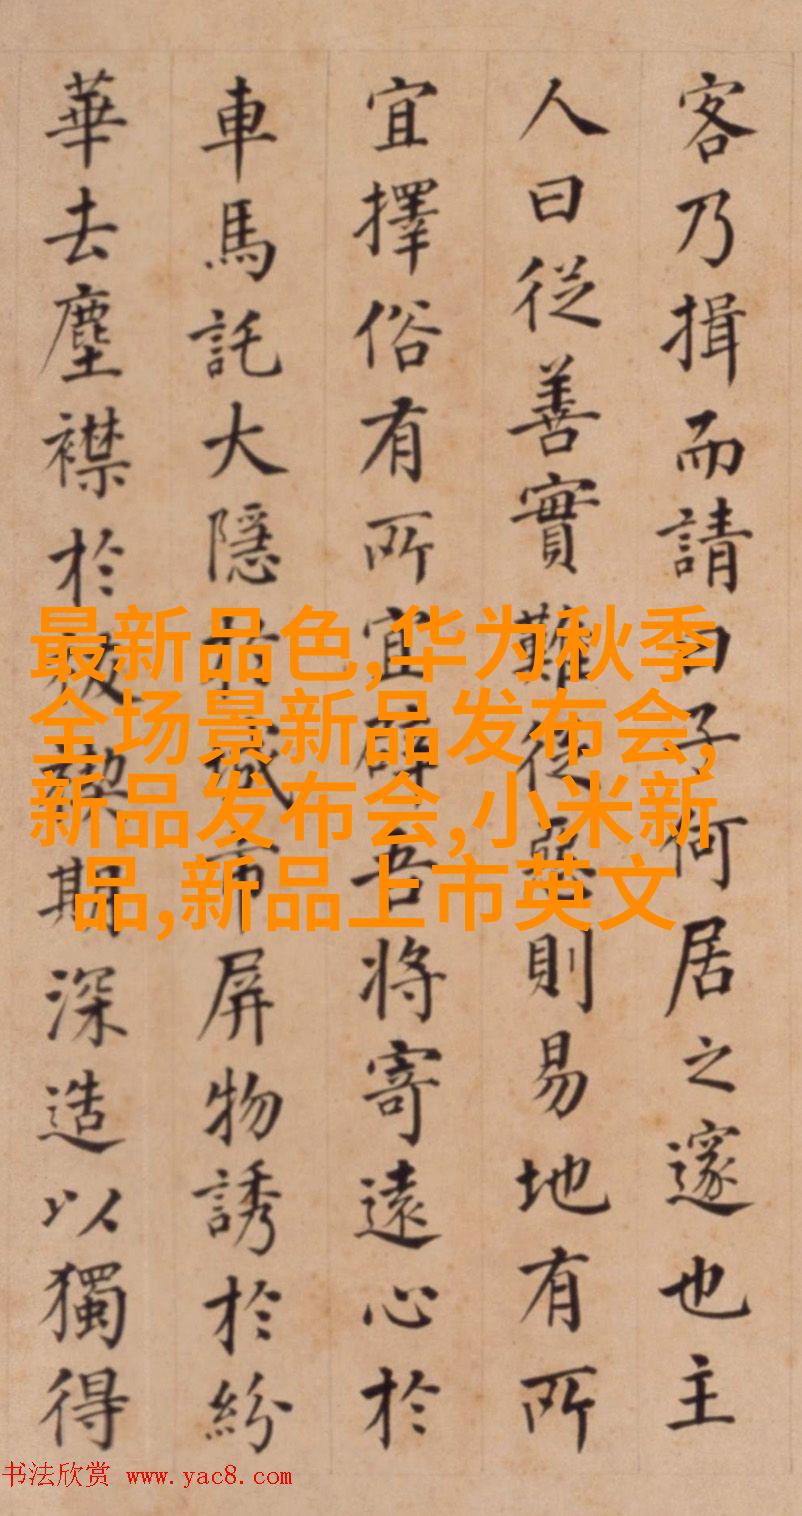 客乃揖而請曰子何居之邃也主
人曰從善實難從惡則易地有所
宜擇俗有所宜辟吾将寄遠心於
車馬託大隱於城市屏物誘於紛
華去塵襟於祓禊期深造以獨得
最新品色,华为秋季
全场景新品发布会,
新品发布会,小米新
品,新品上市英文
书法欣赏 www.yac8.com